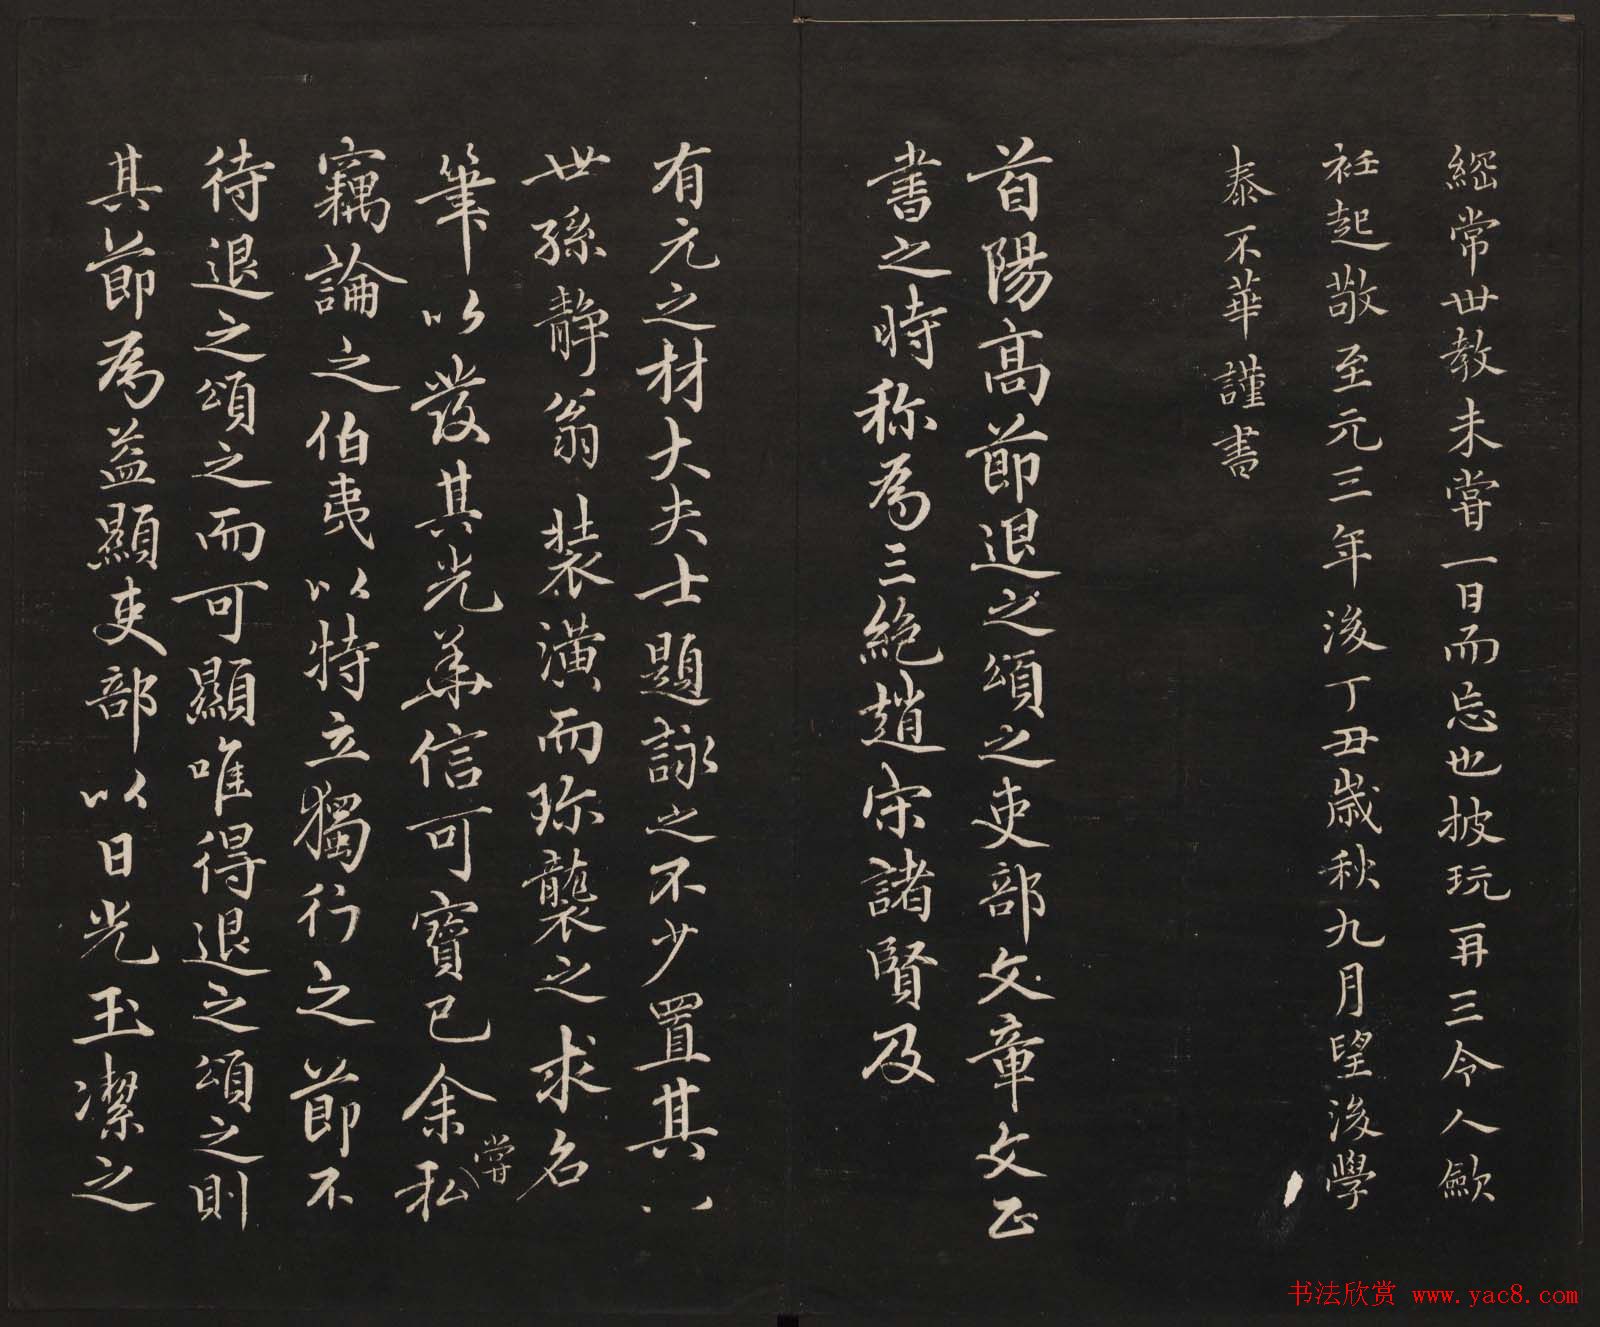 經常世教未嘗一日而忘也披玩再三令人歛
衽起敬至元三年後丁丑歲秋九月望後學
泰不華謹書
首陽高節退之頌之吏部文章文正
書之時称為三絶趙宋諸賢及
有元之材大夫士題詠之不少置其八
世孫静翁裝潢而珎襲之求名
筆以發其光華信可寶已余私
嘗
竊論之伯夷以特立獨行之節不
待退之頌之而可顯唯得退之頌之則
其節為益顯吏部以日光玉潔之
书法欣赏 www.yac8.com